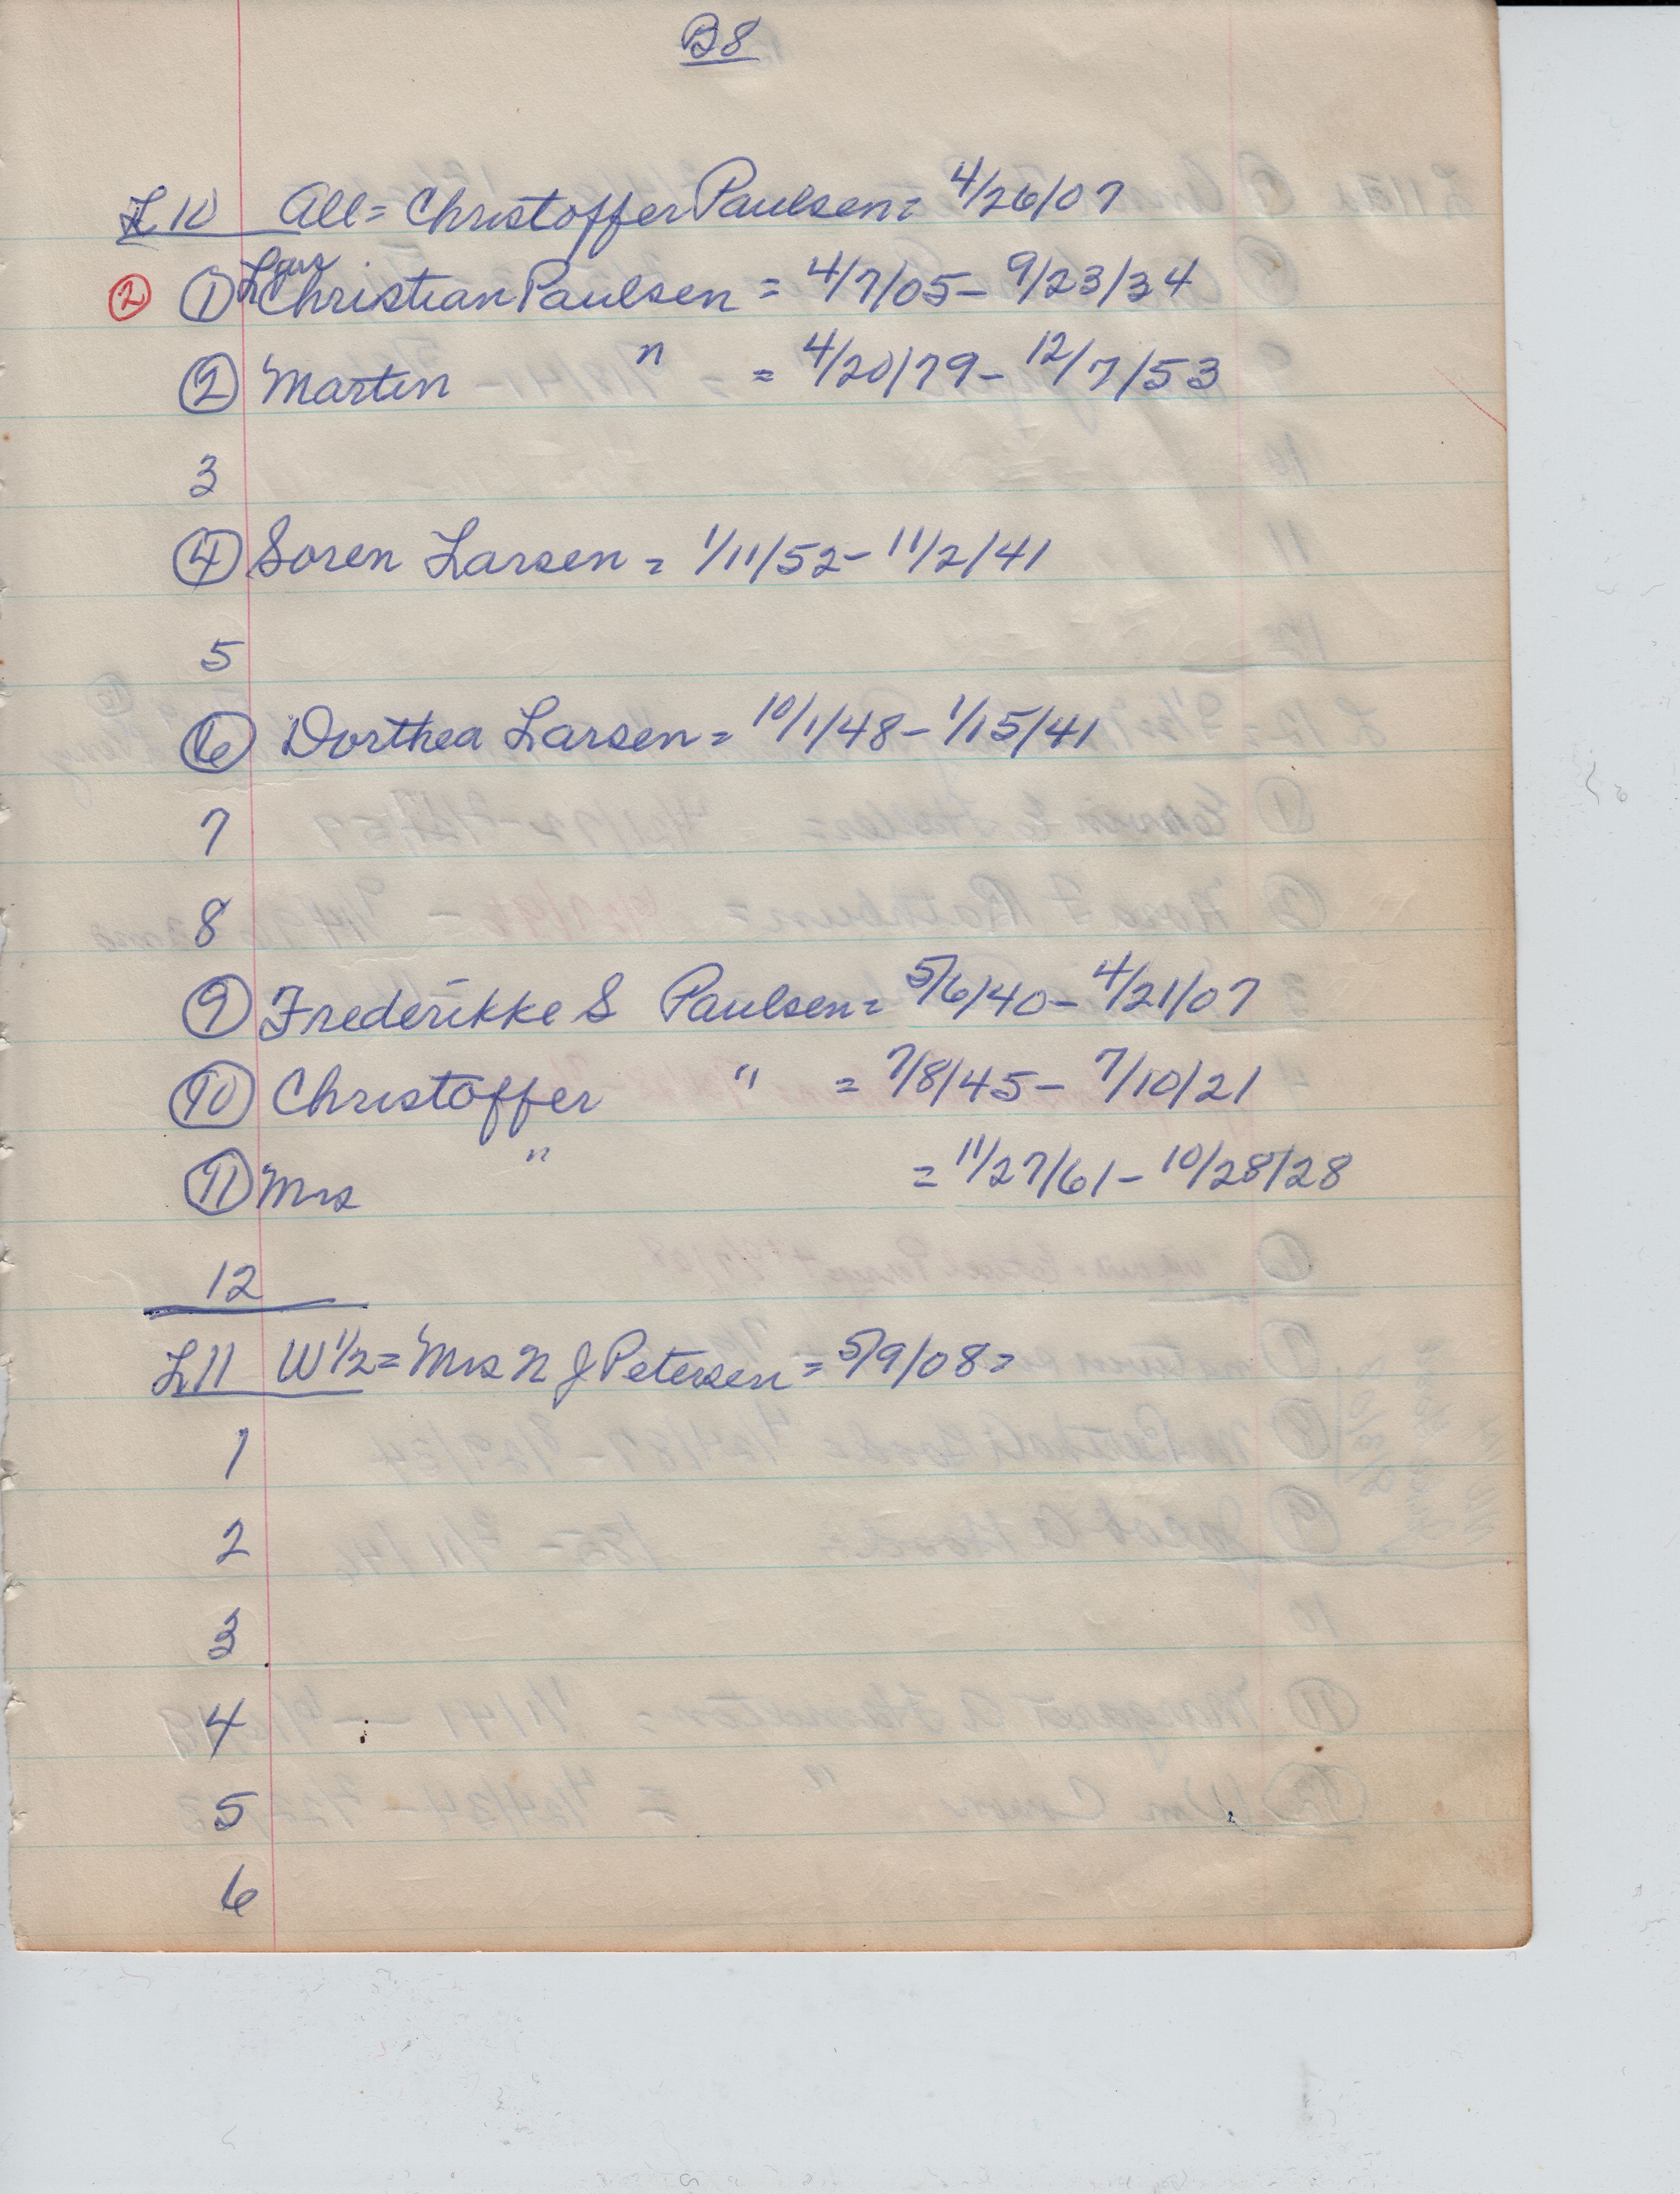 B8
L10 All = Christoffer Paulsen = 4/26/07
Lars
② ① Christian Paulsen = 4/7/05 - 9/23/34
② Martin " = 4/20/79 - 12/7/53
3
④ Soren Larsen = 1/11/52 - 11/2/41
5
⑥ Dorthea Larsen = 10/1/48 - 1/15/41
7
8
⑨ Frederikke S Paulsen = 5/6/40 - 4/21/07
⑩ Christoffer " = 7/8/45 - 7/10/21
⑪ Mrs " = 11/27/61 - 10/28/28
12
L11 W 1/2 = Mrs N J Petersen = 5/9/08 =
1
2
3
4
5
6